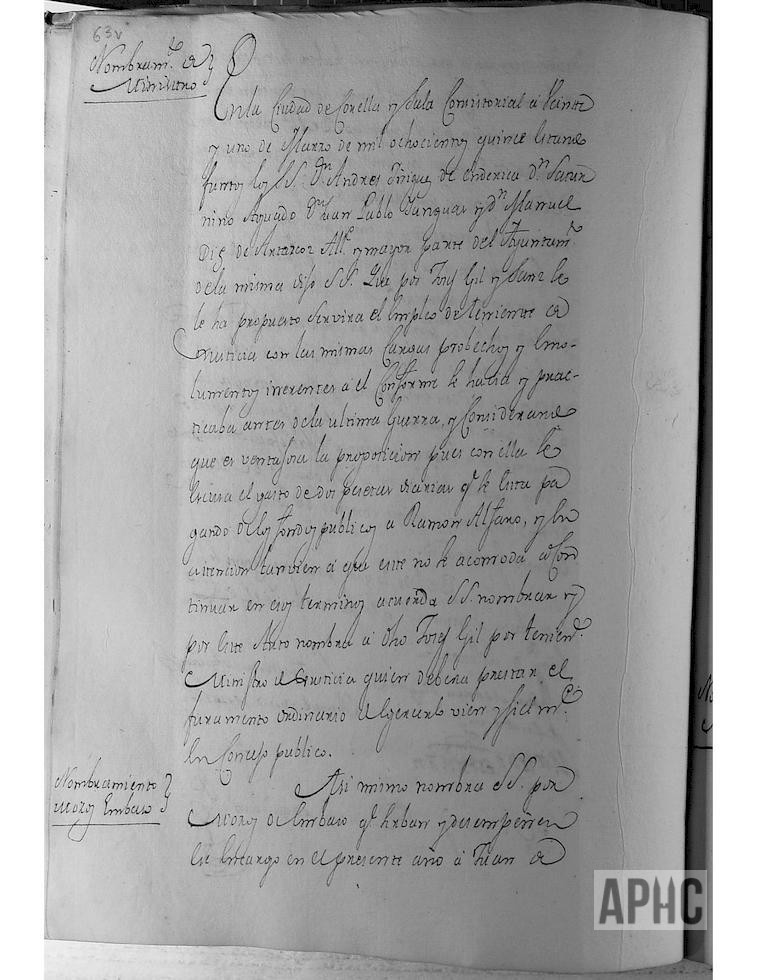 63v
Nombram.to de
Ministro
En la Ciudad de Corella y Sala Consistorial a Veinte
y uno de Marzo de mil ochocientos quince estando
juntos los SS. Dn Andres Iñiguez de Dn Satur
nino Aguado Dn Juan Pablo Sanguas y Dn Manuel
de All.e y mayor parte del Ayuntam.to
de la misma dijo SS. Que por Josef Gil y Sanz se
le ha propuesto servira el Empleo de teniente de
Justicia con las mismas Cargas probechos y Emo-
lumentos inerentes a el Conforme se hacia y prac-
ticaba antes de la ultima Guerra, y Considerando
que es ventajosa la proposicion pues con ella se
escusa el gasto de dos pesetas diarias q.e se esta pa
gando de los fondos publicos a Ramon Alfaro, y en
atencion tanvien a que este no se acomoda a Con
tinuar en esos terminos acuerda SS. nombrar y
por este Auto nombra a dho Josef Gil por tenien.te
Ministro de Justicia quien debera prestar el
juramento ordinario de egercerlo vien y fielm.te
En Concejo publico.
Nombramiento
Mozos Embaso
Asi mismo nombra SS. por
Mozos de Embaso q.e sirban y desempeñen
este encargo en el presente año a Juan de
APHC